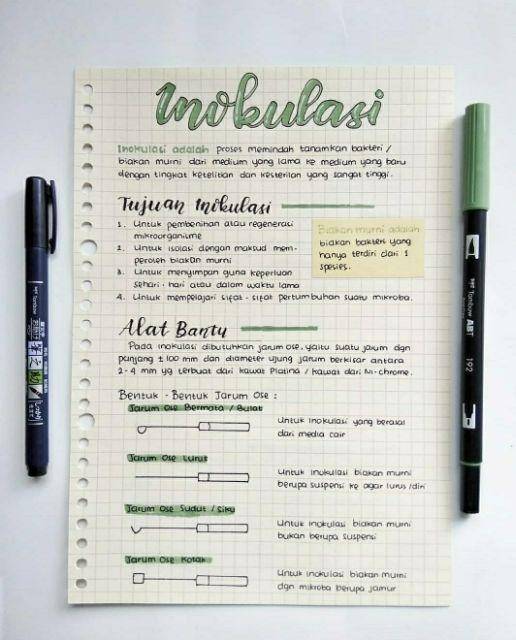 Inokulasi
Inokulasi adalah proses memindah tanamkan bakteri /
biakan murni dari medium yang lama ke medium yang baru
dengan tingkat ketelitian dan kesterilan yang sangat tinggi.
Tujuan Inokulasi
1. Untuk pembenihan atau regenerasi
mikroorganisme
2. Untuk isolasi dengan maksud mem-
peroleh biakan murni
3. Untuk menyimpan guna keperluan
sehari-hari atau dalam waktu lama
4. Untuk mempelajari sifat-sifat pertumbuhan suatu mikroba.
Biakan murni adalah
biakan bakteri yang
hanya terdiri dari 1
spesies.
Alat Bantu
Pada inokulasi dibutuhkan jarum ose, yaitu suatu jarum dgn
panjang ± 100 mm dan diameter ujung jarum berkisar antara
2-4 mm yg terbuat dari kawat Platina / kawat dari Ni-chrome.
Bentuk - Bentuk Jarum Ose :
Jarum Ose Bermata / Bulat
Untuk inokulasi yang berasal
dari media cair
Jarum Ose Lurus
Untuk inokulasi biakan murni
berupa suspensi ke agar lurus /diri
Jarum Ose Sudut / Siku
Untuk inokulasi biakan murni
bukan berupa suspensi
Jarum Ose Kotak
Untuk inokulasi biakan murni
dgn mikroba berupa jamur
Tombow
Tombow ABT
192